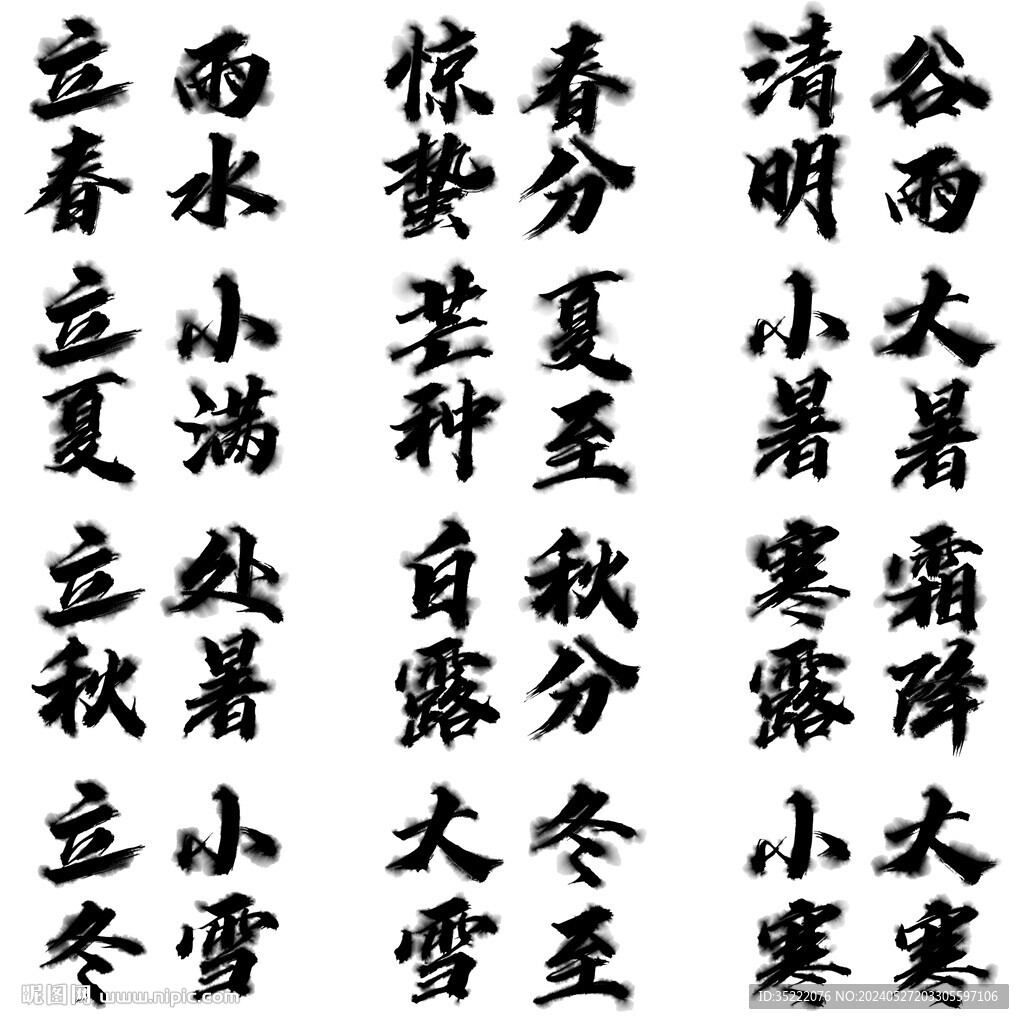 立春
雨水
惊蛰
春分
清明
谷雨
立夏
小满
芒种
夏至
小暑
大暑
立秋
处暑
白露
秋分
寒露
霜降
立冬
小雪
大雪
冬至
小寒
大寒
昵图网 www.nipic.com
ID:35222076 NO:20240527203305597106